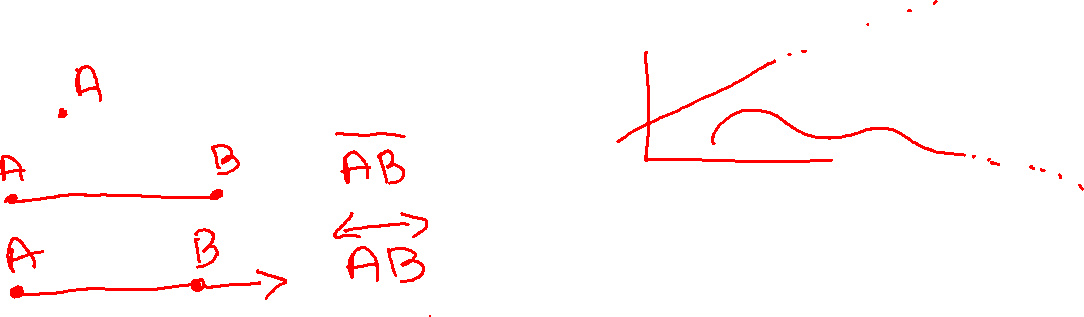 A
A B
$\overline{AB}$
A B
$\overleftrightarrow{AB}$